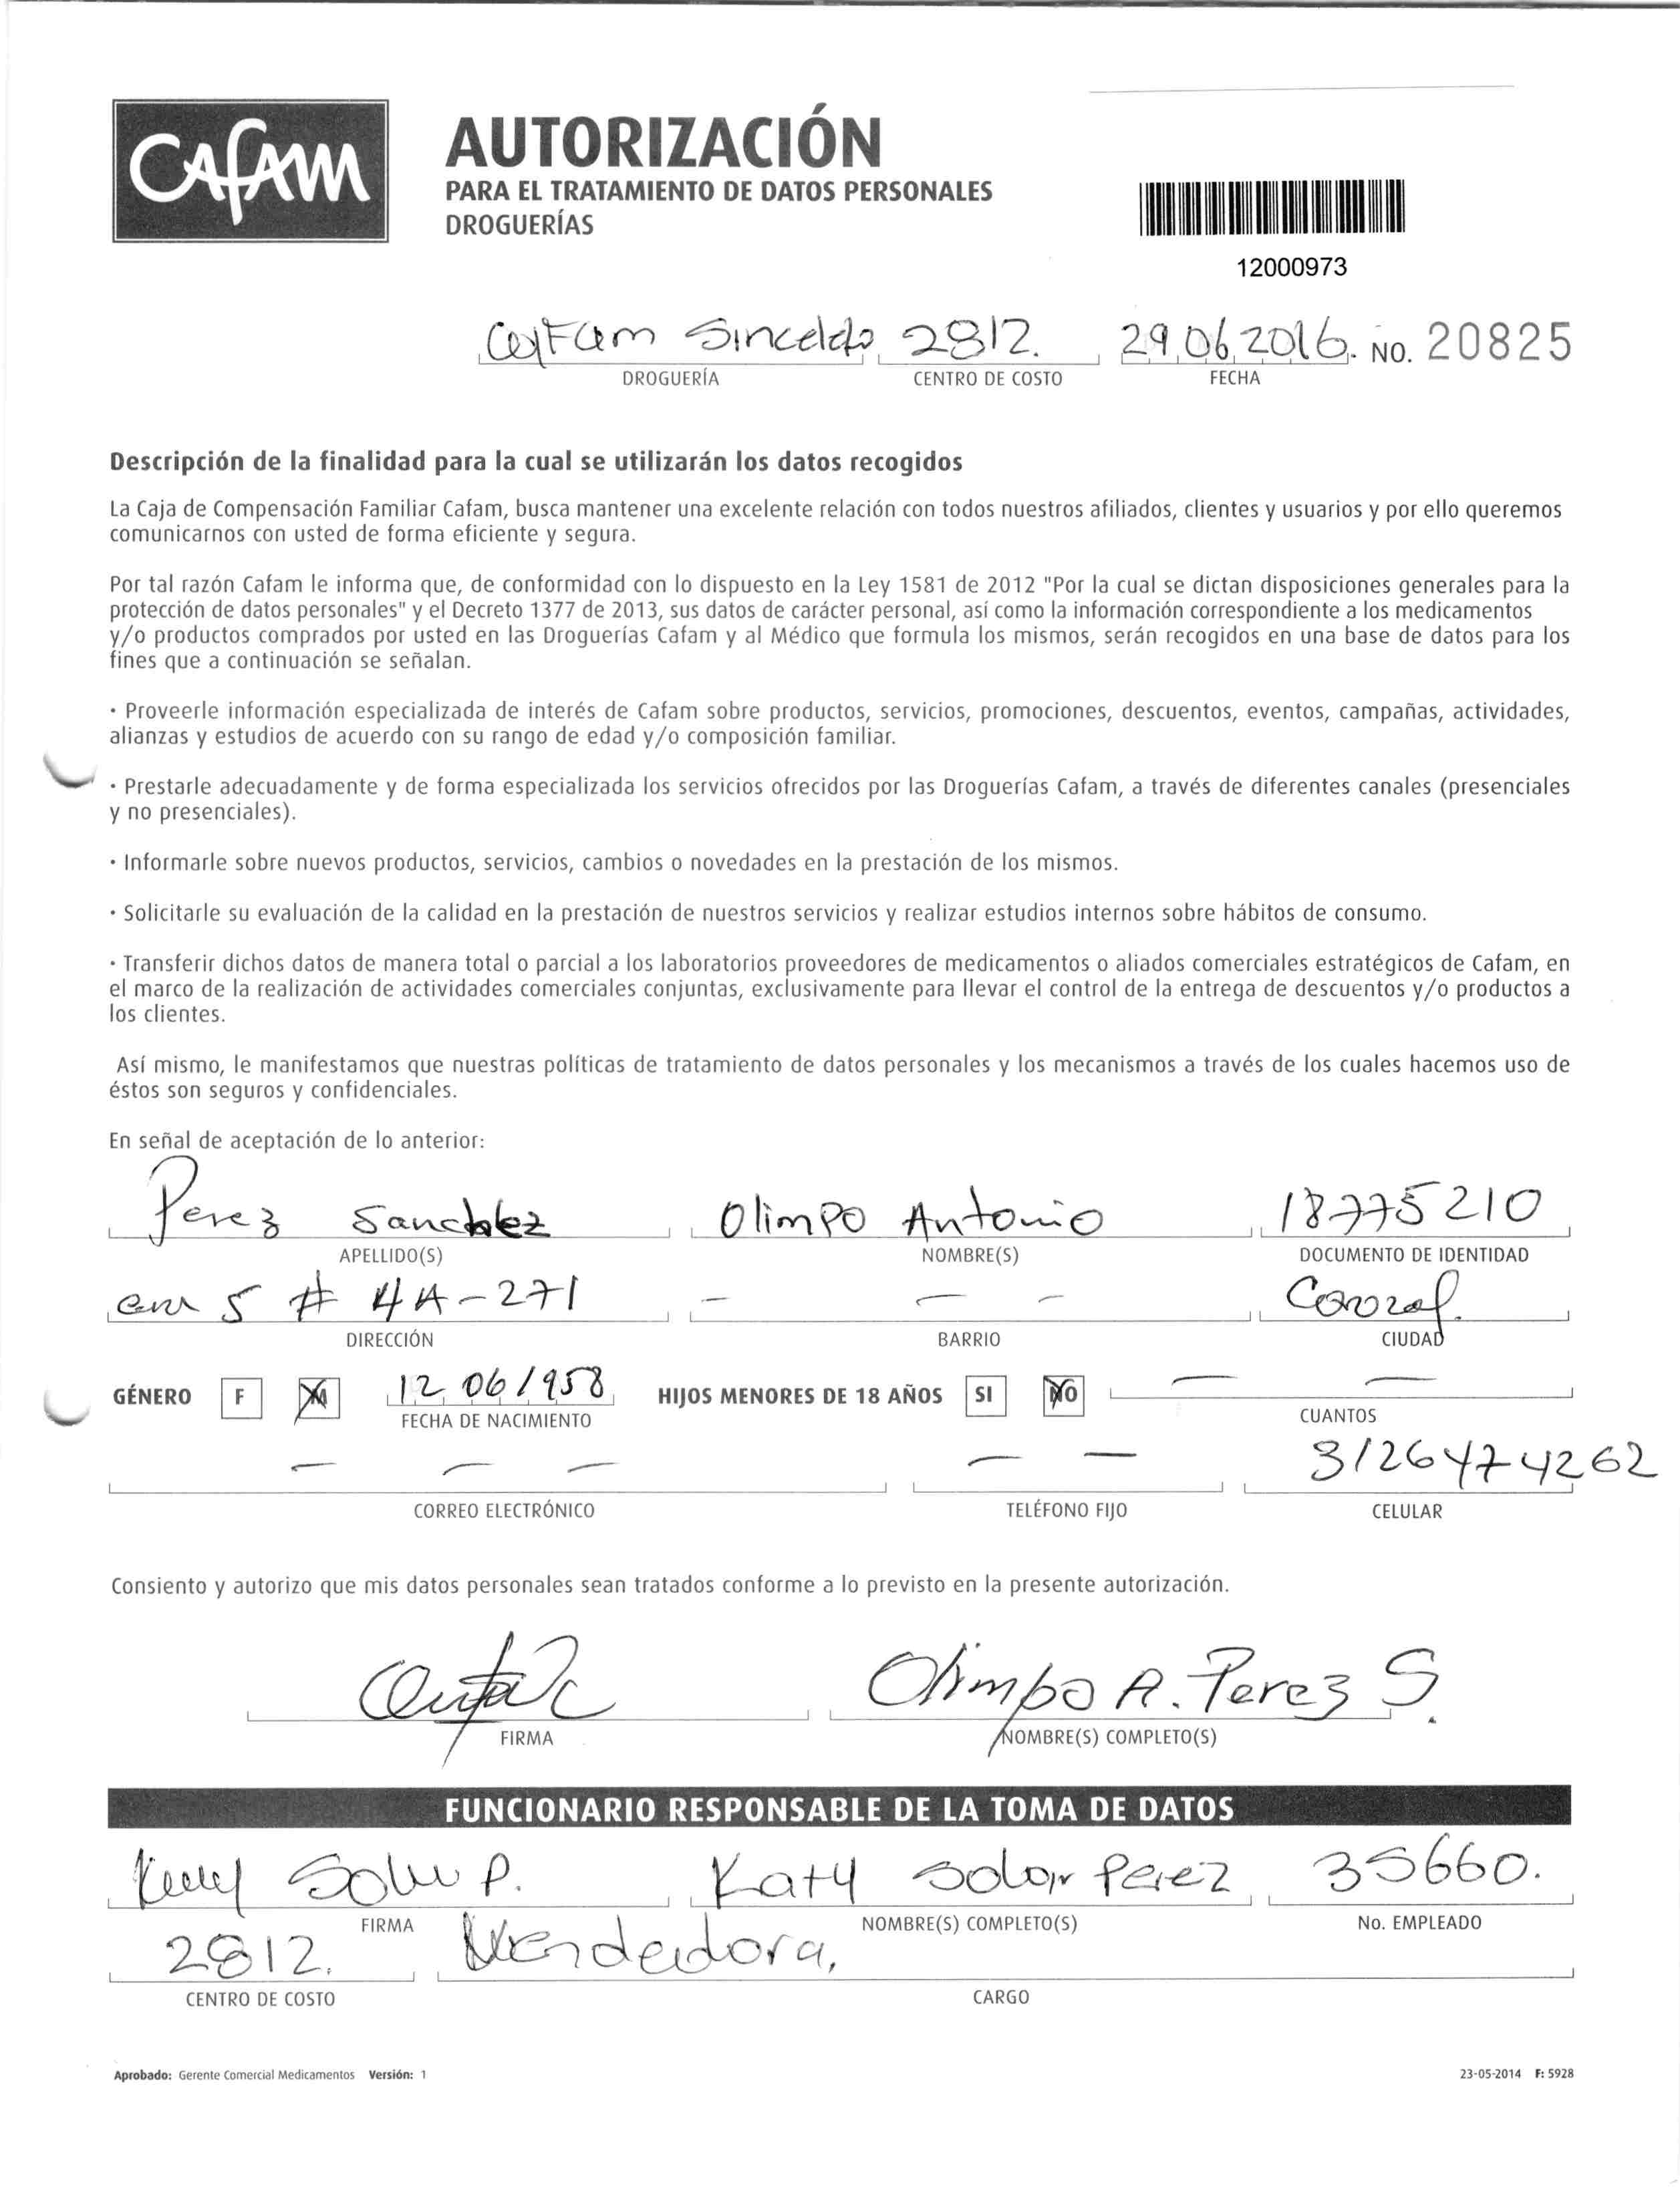 Cafam
AUTORIZACIÓN
PARA EL TRATAMIENTO DE DATOS PERSONALES
DROGUERÍAS
12000973
Cafam Sincelejo 2812. 29 06 2016. NO. 20825
DROGUERÍA CENTRO DE COSTO FECHA
Descripción de la finalidad para la cual se utilizarán los datos recogidos
La Caja de Compensación Familiar Cafam, busca mantener una excelente relación con todos nuestros afiliados, clientes y usuarios y por ello queremos
comunicarnos con usted de forma eficiente y segura.
Por tal razón Cafam le informa que, de conformidad con lo dispuesto en la Ley 1581 de 2012 "Por la cual se dictan disposiciones generales para la
protección de datos personales" y el Decreto 1377 de 2013, sus datos de carácter personal, así como la información correspondiente a los medicamentos
y/o productos comprados por usted en las Droguerías Cafam y al Médico que formula los mismos, serán recogidos en una base de datos para los
fines que a continuación se señalan.
· Proveerle información especializada de interés de Cafam sobre productos, servicios, promociones, descuentos, eventos, campañas, actividades,
alianzas y estudios de acuerdo con su rango de edad y/o composición familiar.
· Prestarle adecuadamente y de forma especializada los servicios ofrecidos por las Droguerías Cafam, a través de diferentes canales (presenciales
y no presenciales).
· Informarle sobre nuevos productos, servicios, cambios o novedades en la prestación de los mismos.
· Solicitarle su evaluación de la calidad en la prestación de nuestros servicios y realizar estudios internos sobre hábitos de consumo.
· Transferir dichos datos de manera total o parcial a los laboratorios proveedores de medicamentos o aliados comerciales estratégicos de Cafam, en
el marco de la realización de actividades comerciales conjuntas, exclusivamente para llevar el control de la entrega de descuentos y/o productos a
los clientes.
Así mismo, le manifestamos que nuestras políticas de tratamiento de datos personales y los mecanismos a través de los cuales hacemos uso de
éstos son seguros y confidenciales.
En señal de aceptación de lo anterior:
Perez Sanchez Olimpo Antonio 18775210
APELLIDO(S) NOMBRE(S) DOCUMENTO DE IDENTIDAD
5 # 4A-271 - - - Corozal.
DIRECCIÓN BARRIO CIUDAD
GÉNERO F M 12 06/958 HIJOS MENORES DE 18 AÑOS SI NO - -
FECHA DE NACIMIENTO CUANTOS
- - - - - 3126474262
CORREO ELECTRÓNICO TELÉFONO FIJO CELULAR
Consiento y autorizo que mis datos personales sean tratados conforme a lo previsto en la presente autorización.
Olimpo A. Perez S.
FIRMA NOMBRE(S) COMPLETO(S)
FUNCIONARIO RESPONSABLE DE LA TOMA DE DATOS
P. Katy Solar Perez 35660.
FIRMA NOMBRE(S) COMPLETO(S) No. EMPLEADO
2812. Vendedora,
CENTRO DE COSTO CARGO
Aprobado: Gerente Comercial Medicamentos Versión: 1 23-05-2014 F: 5928